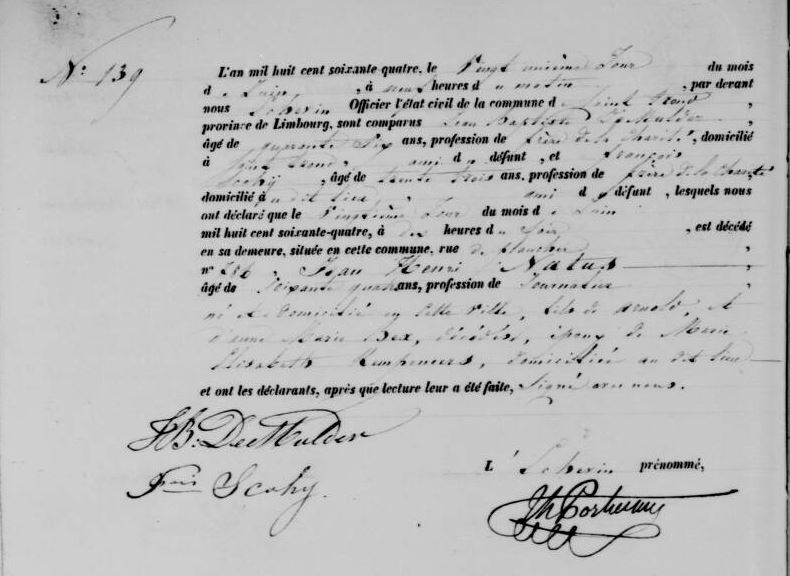 N.º 139
L'an mil huit cent soixante-quatre, le Vingt unième Jour du mois
de Juin, à neuf heures du matin, par devant
nous Echevin Officier l'état civil de la commune de Saint Trond,
province de Limbourg, sont comparus Jean Baptiste DeMulder,
âgé de quarante Six ans, profession de frère de la Charité, domicilié
à Saint Trond, ami du défunt, et françois
Scohy, âgé de trente trois ans, profession de frère De la Charité,
domicilié au dit lieu, ami du défunt, lesquels nous
ont déclaré que le Vingtième Jour du mois de Juin
mil huit cent soixante-quatre, à dix heures du Soir, est décédé
en sa demeure, située en cette commune, rue de
nº 256, Jean Henri Natus,
âgé de Soixante quatre ans, profession de Journalier,
né et domicilié en cette Ville, fils de arnold, et
d'anne Marie Bex, décédés, époux de Marie
Elisabeth Kempeneers, domiciliée au dit lieu
et ont les déclarants, après que lecture leur a été faite, Signé avec nous.
JB: DeMulder
L'Echevin prénommé,
Fois Scohy.